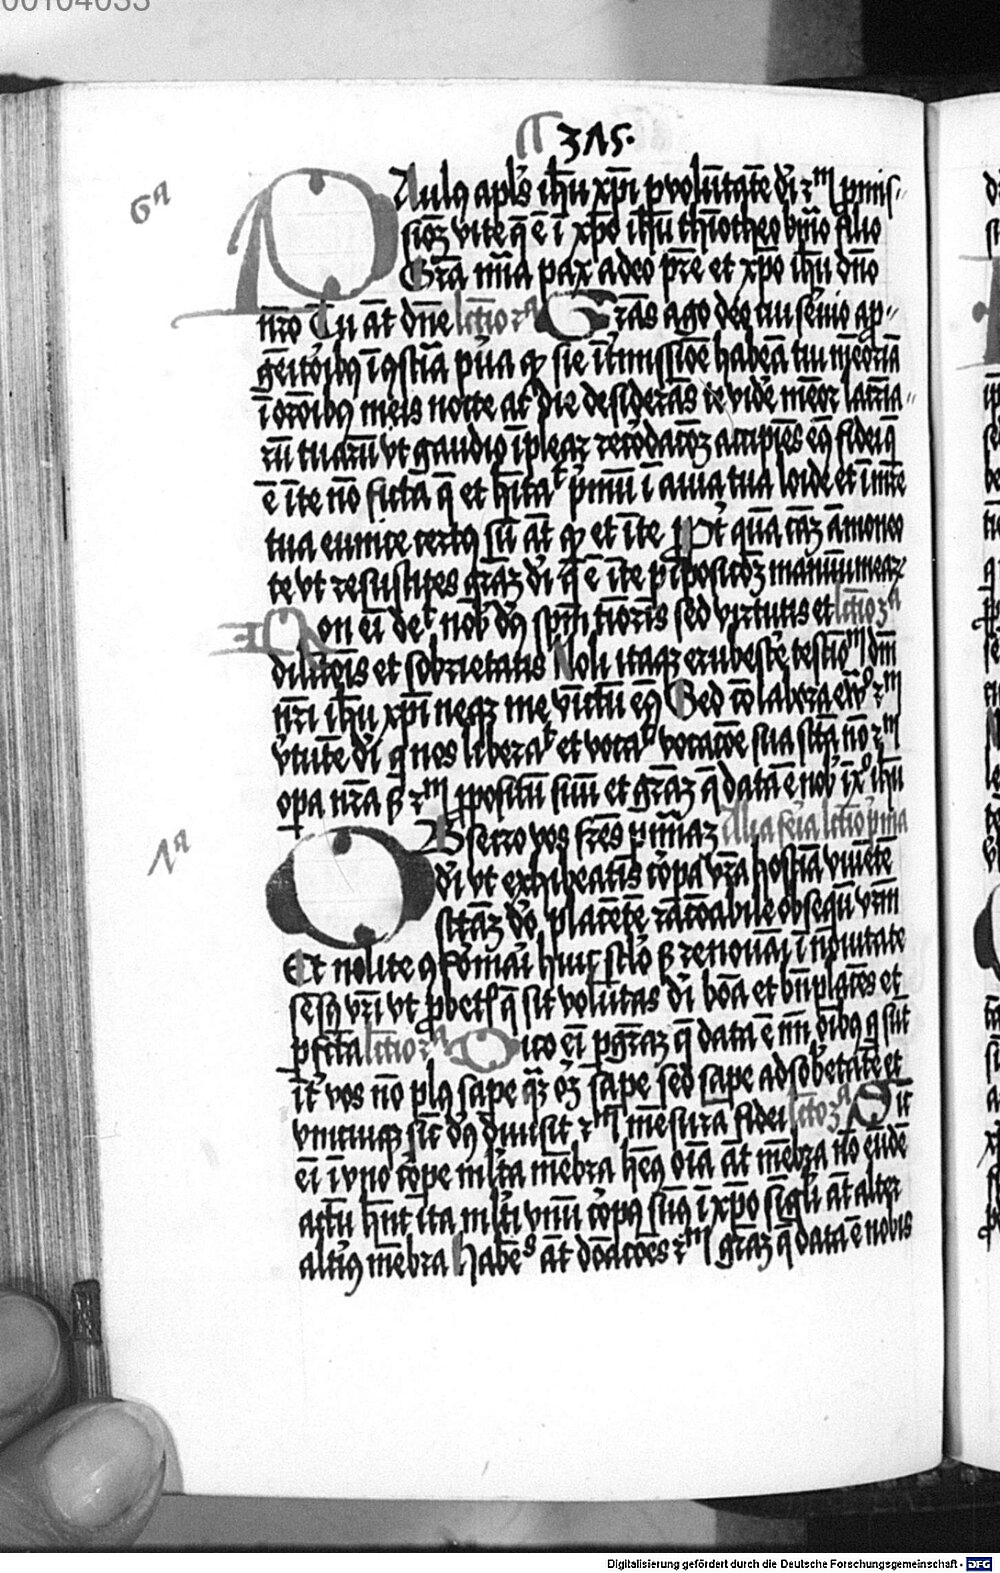 00104033
315.
6a
PAulꝯ apl's ih'u xp̄i p volūtatē di 2m pmis-
sioꝫ vite q̄ ē i xp̄o ihū thiotheo kmo filio
Grā mīa pax a deo pr̄e et xp̄o ihū dn̄o
nr̄o Tu aūt dn̄e lectio 2a Grās ago deo cui s'uio a p̄-
gēitoribꝯ ī ꝯsciā pura qꝫ sīe īt'missiōe habeā tui mēoriā
ī orōibꝯ meis nocte ac die desiderās te vide' mēor lacr̄ia-
rū tuarū vt gaudio īplear recordacōꝫ accipiēs eiꝯ fidei q̄
ē ī te nō ficta q̄ et hītat p'mū ī auia tua loide et ī mr̄e
tua eunice certꝯ sū aūt qꝫ et ī te Pt' quā cāꝫ āmoneo
te vt resuscites grāꝫ di q̄ ē ī te p īposicōꝫ manuū mear
Non ei dedt nob' dꝯ spm tioris sed virtutis et lectio 3a
dilcōis et sobrietatis Noli itaqꝫ erubesce' testiom dm̄
nr̄i ihū xp̄i neqꝫ me vīctū eiꝯ Sed colabora ewo 2m
v'tutē di q nos liberat et vocat vocacōe sua scā nō 2m
opa nr̄a sꝫ 2m ꝓpositū suū et grāꝫ q̄ data ē nob' ī xo ihū
OBsecro vos fr̄es p mīaꝫ Alia feia lectio pma
1a
di vt exhibeatis corpa vr̄a hostiā viuētē
scāꝫ do placētē racōabile obsequū vr̄m
Et nolite ꝯformari huic scl'o sꝫ renouāi ī nouitate
sēsꝯ vr̄i vt ꝓbetis q̄ sit volūtas di bōa et bn̄placēs et
pfcta lectio 2a Dico ei p grāꝫ q̄ data ē m' oībꝯ q sūt
īt' vos nō plꝯ sape' qꝫ oꝫ sape' sed sape' ad sobetatē et
vnicuiqꝫ sic' dꝯ diuisit 2m mēsurā fidei lectio 3a Sic
ei ī vno corpe ml'ta mēbra hemꝯ oīa aūt mēbra nō eūdē
actū hn̄t ita ml'ti vnū corpꝯ sumꝯ ī xp̄o sīgli aūt alter
alt'iꝯ mēbra Habēs aūt donacōes 2m grāꝫ q̄ data ē nobis
Digitalisierung gefördert durch die Deutsche Forschungsgemeinschaft - DFG